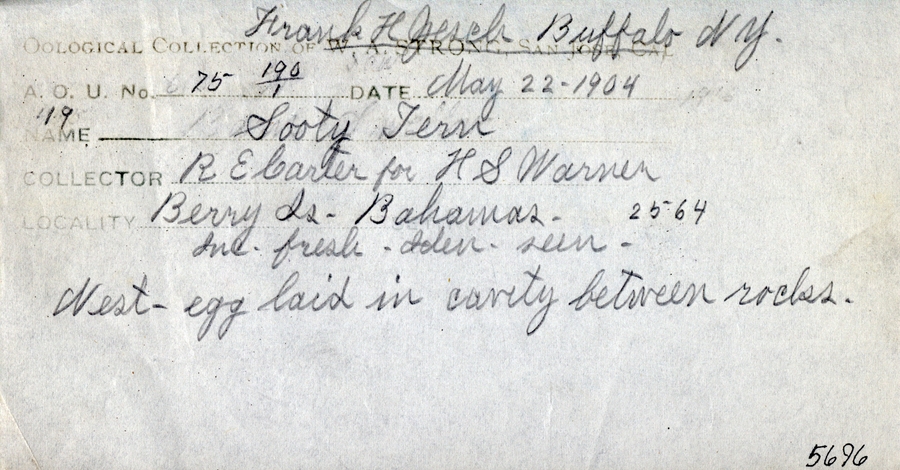 Frank H Buffalo NY.
OOLOGICAL COLLECTION OF W. A. STRONG, SAN JOSE, CAL
A. O. U. No. 75 190/1 DATE May 22-1904
119
NAME Sooty Tern
COLLECTOR R E Carter for H S Warner
LOCALITY Berry Is- Bahamas- 2564
Inc- fresh - Iden- seen -
Nest- egg laid in cavity between rocks.
5696